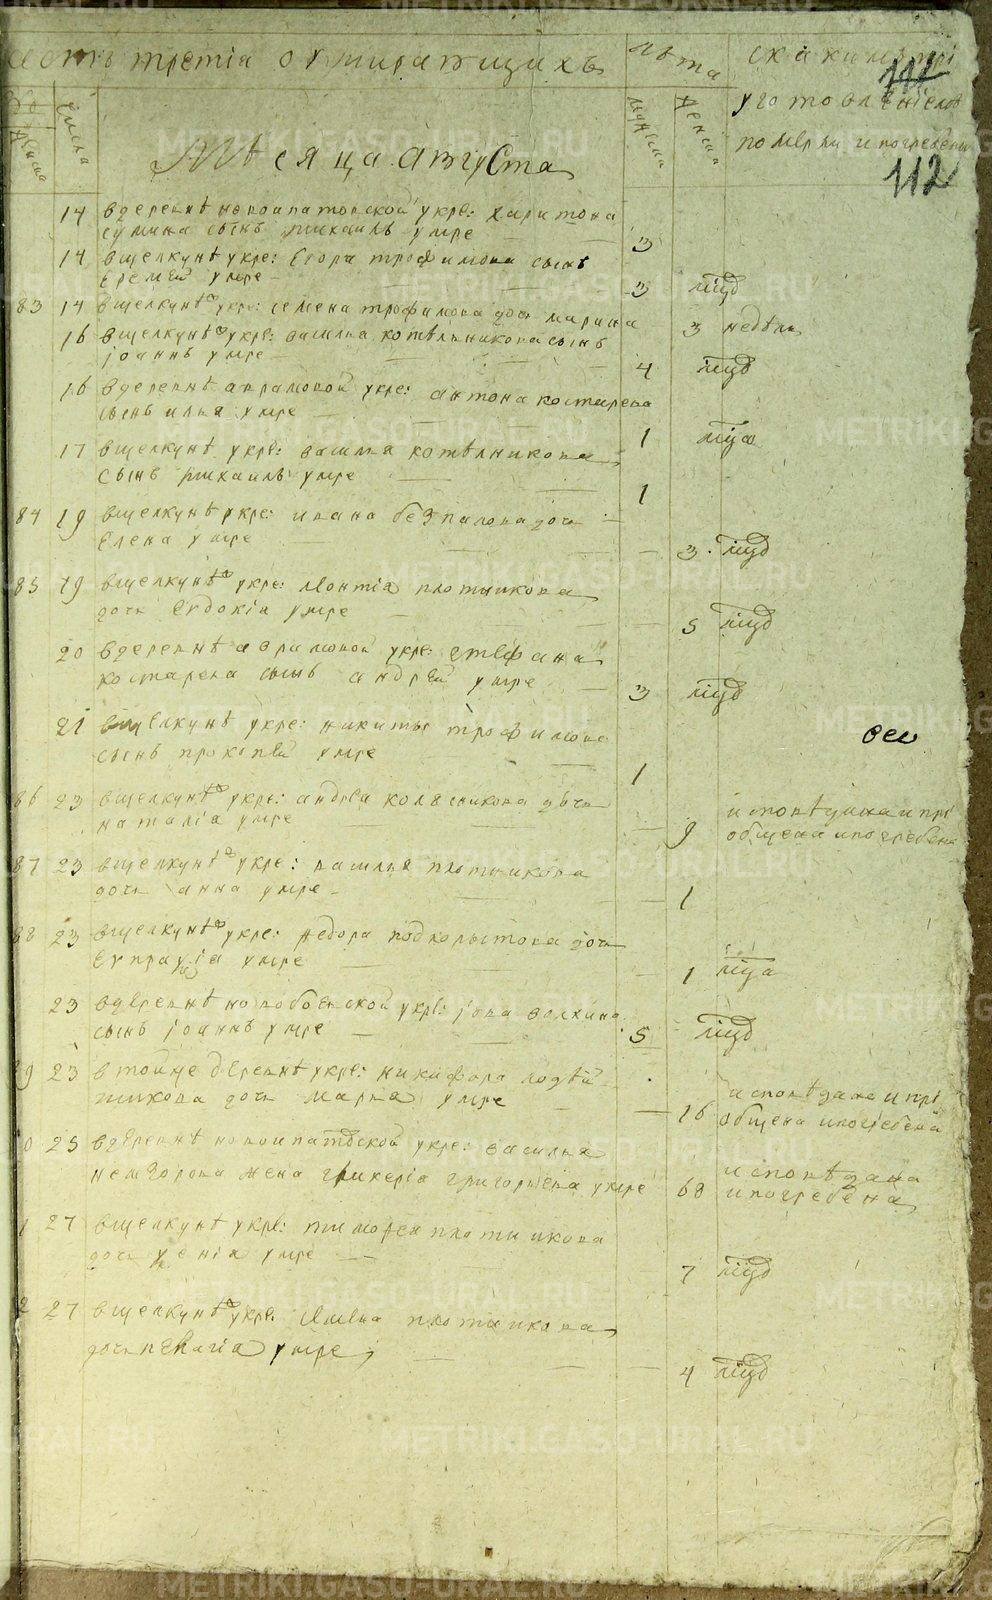 часть третiа о умирающихъ
лѣта
ска какимъ прі
уготовленіемъ
померли и погребены
111
112
числа
мужеска
женска
Мѣсяца августа
14 вдеревнѣ новоипатовской укре: харитона
сумина сынъ михаилъ умре 3
14 вщелкунѣ укре: егора трофимова сынъ
еремей умре 3 мцъ
83 14 вщелкунѣ укре: семена трофимова дочь марина 3 недѣли
16 вщелкунѣ укре: василья котѣлникова сынъ
іоаннъ умре 4 мцъ
16 вдеревнѣ аврамовой укре: антона костарева
сынъ илья умре 1 мца
17 вщелкунѣ укре: василья котѣлникова
сынъ михаилъ умре 1
84 19 вщелкунѣ укре: ивана безпалова дочь
елена умре 3 мцъ
85 19 вщелкунѣ укре: леонтія плотникова
дочь евдокія умре 5 мцъ
20 вдеревнѣ аврамовой укре: стефана
костарева сынъ андрей умре 3 мцъ
21 вщелкунѣ укре: никиты трофимова
сынъ прокопей умре 1
86 23 вщелкунѣ укре: андрѣа колясникова дочь
наталіа умре 9
исповѣдана и прі
общена ипогребена
87 23 вщелкунѣ укре: василья плотникова
дочь анна умре 1
88 23 вщелкунѣ укре: федора подкорытова дочь
умре 1 мца
23 вдеревнѣ укре: іова
сынъ іоаннъ умре 5 мцъ
9 23 втойже деревнѣ укре: никифора
дочь марѳа умре 16
исповѣдана и прі
общена ипогребена
0 25 вдеревнѣ новоипатовской укре: василья
жена гликеріа григорьева умре 68
исповѣдана
ипогребена
1 27 вщелкунѣ укре: тимоѳея плотникова
дочь умре 7 мцъ
2 27 вщелкунѣ укре: плотникова
дочь пелагіа умре 4 мцъ
METRIKI.GASO-URAL.RU